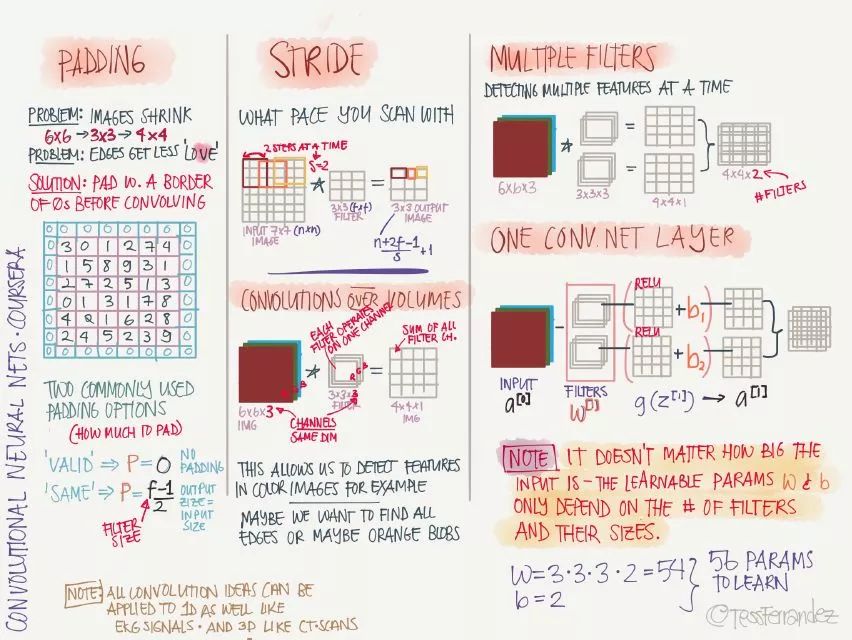 CONVOLUTIONAL NEURAL NETS · COURSERA
PADDING
PROBLEM: IMAGES SHRINK
6x6 → 3x3 → 4x4
PROBLEM: EDGES GET LESS 'LOVE'
SOLUTION: PAD W. A BORDER
OF 0s BEFORE CONVOLVING
0 0 0 0 0 0 0 0
0 3 0 1 2 7 4 0
0 1 5 8 9 3 1 0
0 2 7 2 5 1 3 0
0 0 1 3 1 7 8 0
0 4 2 1 6 2 8 0
0 2 4 5 2 3 9 0
0 0 0 0 0 0 0 0
TWO COMMONLY USED
PADDING OPTIONS
(HOW MUCH TO PAD)
'VALID' ⇒ P=0 NO PADDING
'SAME' ⇒ P= f-1/2 OUTPUT SIZE = INPUT SIZE
FILTER SIZE
NOTE: ALL CONVOLUTION IDEAS CAN BE
APPLIED TO 1D AS WELL LIKE
EKG SIGNALS · AND 3D LIKE CT-SCANS
STRIDE
WHAT PACE YOU SCAN WITH
2 STEPS AT A TIME
S=2
*
=
INPUT 7x7 (nxn)
IMAGE
3x3 (fxf)
FILTER
3x3 OUTPUT
IMAGE
n+2f-1/s +1
CONVOLUTIONS OVER VOLUMES
EACH
FILTER OPERATES
ON ONE CHANNEL
SUM OF ALL
FILTER CH.
R G B
*
R G B
=
6x6x3
IMG
3x3x3
FILTER
4x4x1
IMG
CHANNELS
SAME DIM
THIS ALLOWS US TO DETECT FEATURES
IN COLOR IMAGES FOR EXAMPLE
MAYBE WE WANT TO FIND ALL
EDGES OR MAYBE ORANGE BLOBS
MULTIPLE FILTERS
DETECTING MULTIPLE FEATURES AT A TIME
*
=
=
6x6x3
3x3x3
4x4x1
4x4x2
# FILTERS
ONE CONV. NET LAYER
RELU
( + b1 )
RELU
( + b2 )
INPUT
a[0]
FILTERS
W[1]
g(z[1]) → a[1]
NOTE IT DOESN'T MATTER HOW BIG THE
INPUT IS - THE LEARNABLE PARAMS W & b
ONLY DEPEND ON THE # OF FILTERS
AND THEIR SIZES.
W=3·3·3·2=54
b=2
56 PARAMS
TO LEARN
@TessFerrandez